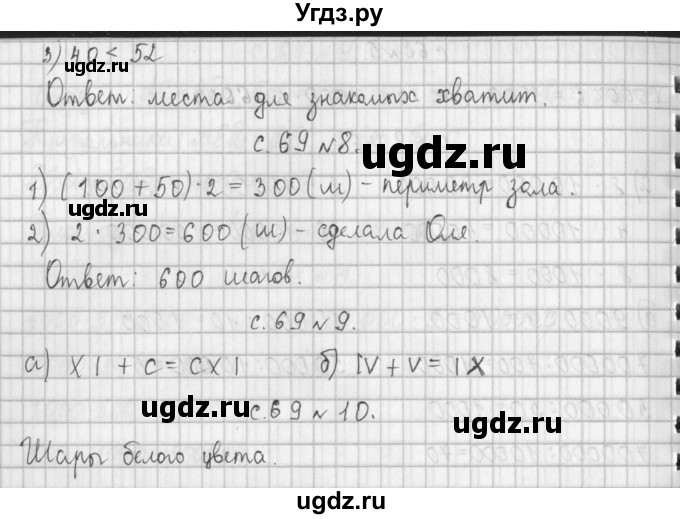 Угдз.ру
3) 40 < 52
ugdz.ru
Ответ: места для знакомых хватит.
ugdz.ru
с. 69 №8.
ugdz.ru
1) (100 + 50) · 2 = 300 (ш) - периметр зала.
ugdz.ru
2) 2 · 300 = 600 (ш) - сделала Оля.
Ответ: 600 шагов.
ugdz.ru
с. 69 №9.
а) XI + C = CXI б) IV + V = IX
ugdz.ru
ugdz.ru
с. 69 №10.
Шары белого цвета.
ugdz.ru
ugdz.ru
ugdz.ru